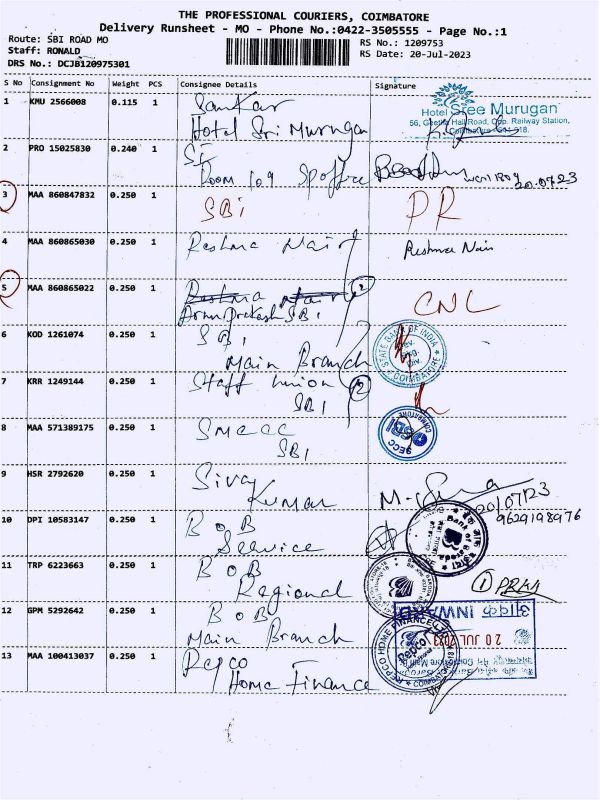 THE PROFESSIONAL COURIERS, COIMBATORE
Delivery Runsheet - MO - Phone No.:0422-3505555 - Page No.:1
Route: SBI ROAD MO
Staff: RONALD
DRS No.: DCJB120975301
RS No.: 1209753
RS Date: 20-Jul-2023
S No Consignment No Weight PCS Consignee Details Signature
1 KMU 2566008 0.115 1 Sankar
Hotel Sri Murugan
Hotel Sree Murugan
56, Geetha Hall Road, Opp. Railway Station,
Coimbatore - 641 018.
2 PRO 15025830 0.240 1
Room 109 Spoffice
20.07.23
3 MAA 860847832 0.250 1 SBI PR
4 MAA 860865030 0.250 1 Reshma Nair Reshma Nair
5 MAA 860865022 0.250 1 Reshma Nair 2
Arun Prakash SBI
CNL
6 KOD 1261074 0.250 1 SBI
Main Branch
STATE BANK OF INDIA
COIMBATORE
7 KRR 1249144 0.250 1 Staff Union 2
SBI
8 MAA 571389175 0.250 1 SMECC
SBI
COIMBATORE
SBI
SECC
9 HSR 2792620 0.250 1 Siva
Kumar
M. Siva
20/07/23
9629198976
10 DPI 10583147 0.250 1 BOB
Service
Bank of Baroda
11 TRP 6223663 0.250 1 BOB
Regional
1
12 GPM 5292642 0.250 1 BOB
Main Branch
आवक INWARD
20 JUL 2023
13 MAA 100413037 0.250 1 Repco
Home Finance
REPCO HOME FINANCE LTD
Repco
COIMBATORE